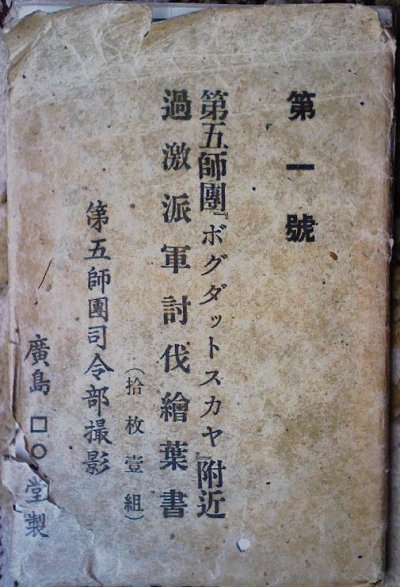 第一號
第五師團『ボグダットスカヤ』附近
過激派軍討伐繪葉書
（拾枚壹組）
第五師團司令部撮影
廣島□○堂製